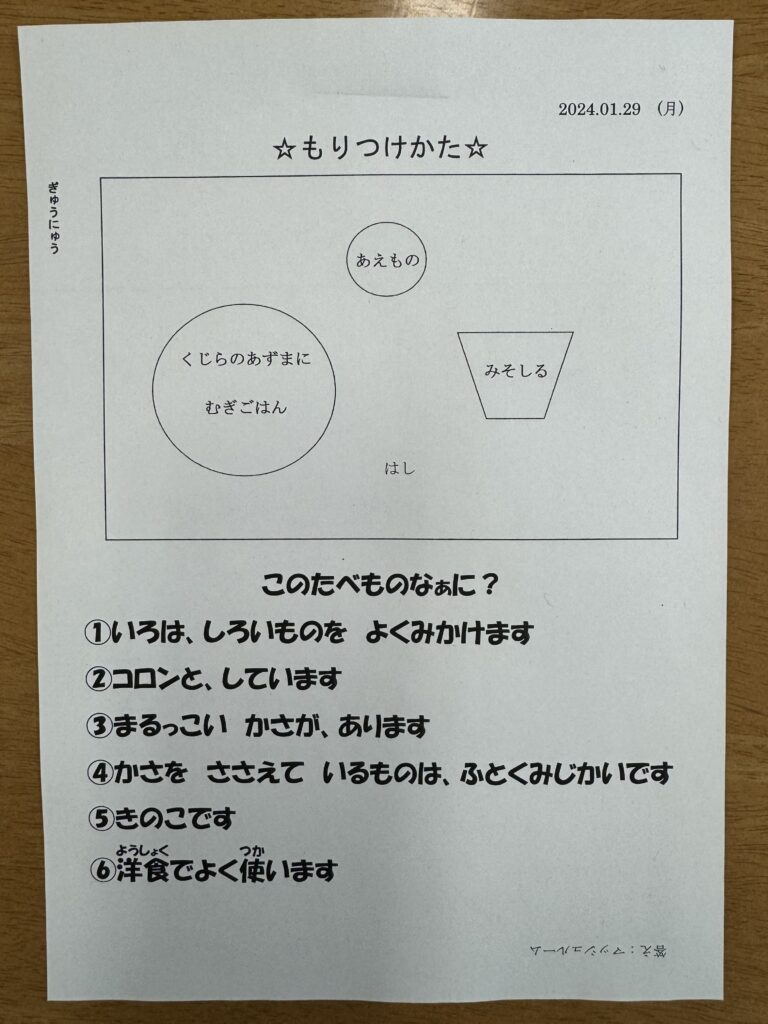 2024.01.29 (月)
☆もりつけかた☆
ぎゅうにゅう
あえもの
くじらのあずまに
むぎごはん
みそしる
はし
このたべものなぁに?
①いろは、しろいものを よくみかけます
②コロンと、しています
③まるっこい かさが、あります
④かさを ささえて いるものは、ふとくみじかいです
⑤きのこです
ようしょく つか
⑥洋食でよく使います
答え:マッシュルーム